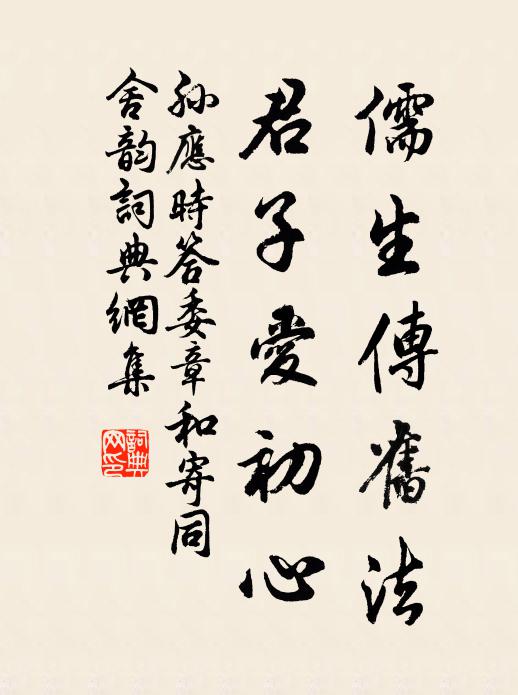 儒生傳舊法
君子愛初心
孫應時答委章和寄同
舍韵詞典網集
詞典網印